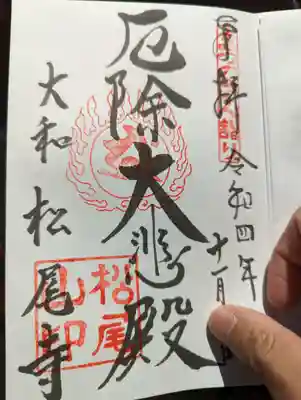 奉拝 令和四年十一月
厄除大悲殿
大和 松尾寺
松尾山印